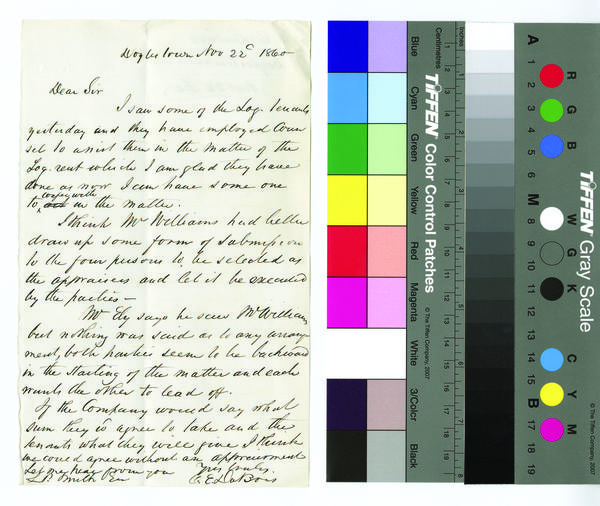 Doylestown Nov 22d 1860
Dear Sir
I saw some of the Log. Tenants
yesterday and they have employed Coun
sel to assist them in the matter of the
Log. rent which I am glad they have
done as now I can have some one
to confer with in the matter.
I think Mr Williams had better
draw up some form of submission
to the four persons to be selected as
the appraisers and let it be executed
by the parties —
Mr Ely says he saw Mr Williams
but nothing was said as to any arrange
ment, both parties seem to be backward
in the starting of the matter and each
wants the other to lead off.
If the Company would say what
sum they'd agree to take and the
tenants what they will give I think
we could agree without an appraisement
Let me hear from you Yrs truly
L B Smith Esq C. E. DuBois
Blue
Cyan
Green
Yellow
Red
Magenta
White
3/Color
Black
Centimetres
Inches
TIFFEN® Color Control Patches
© The Tiffen Company, 2007
TIFFEN® Gray Scale
© The Tiffen Company, 2007
A
1
2
3
4
5
6
M
8
9
10
11
12
13
14
15
B
17
18
19
R
G
B
W
G
K
C
Y
M